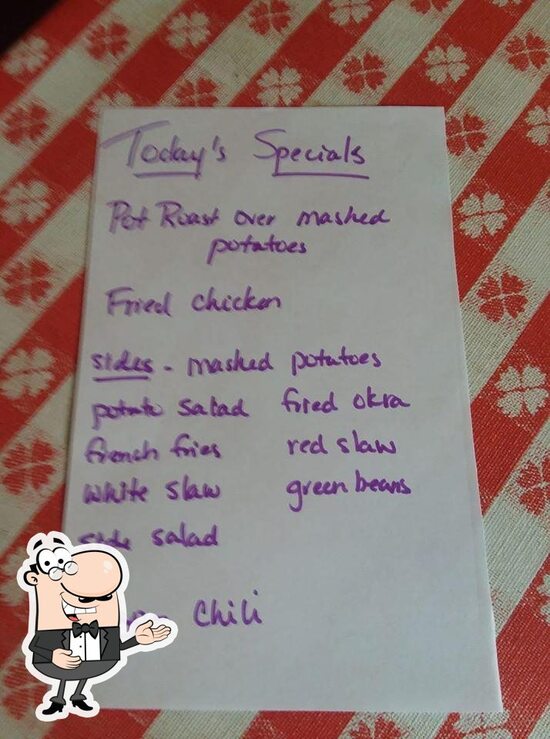 Today's Specials
Pot Roast over mashed
potatoes
Fried chicken
sides - mashed potatoes
potato salad fired okra
french fries red slaw
white slaw green beans
side salad
Chili